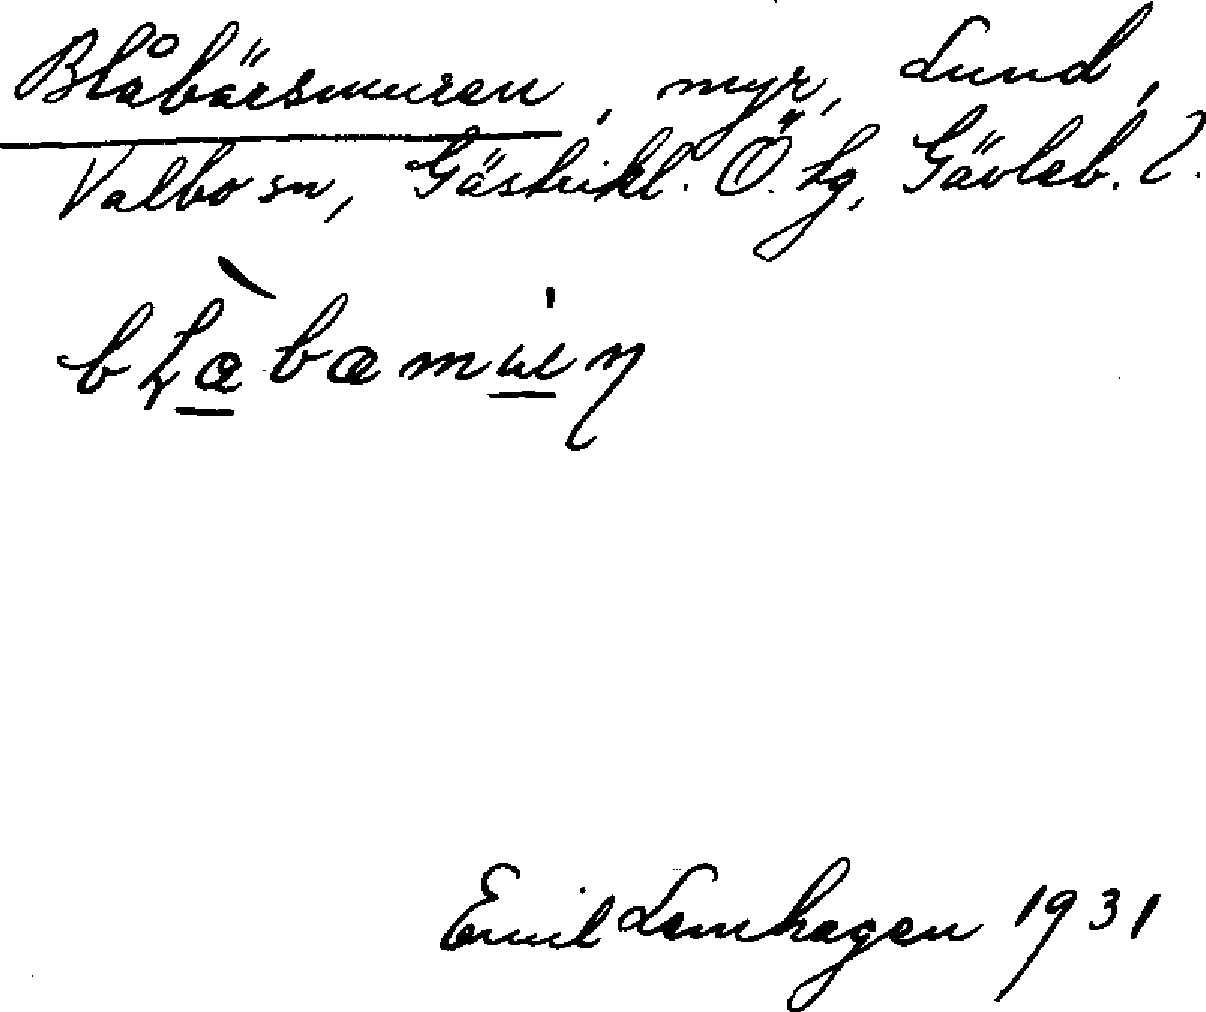 Blåbärsmuren, myr, Lund,
Valbo sn, Gästrikl. Ö. Lg, Gävleb. L.
Emil Lemhagen 1931